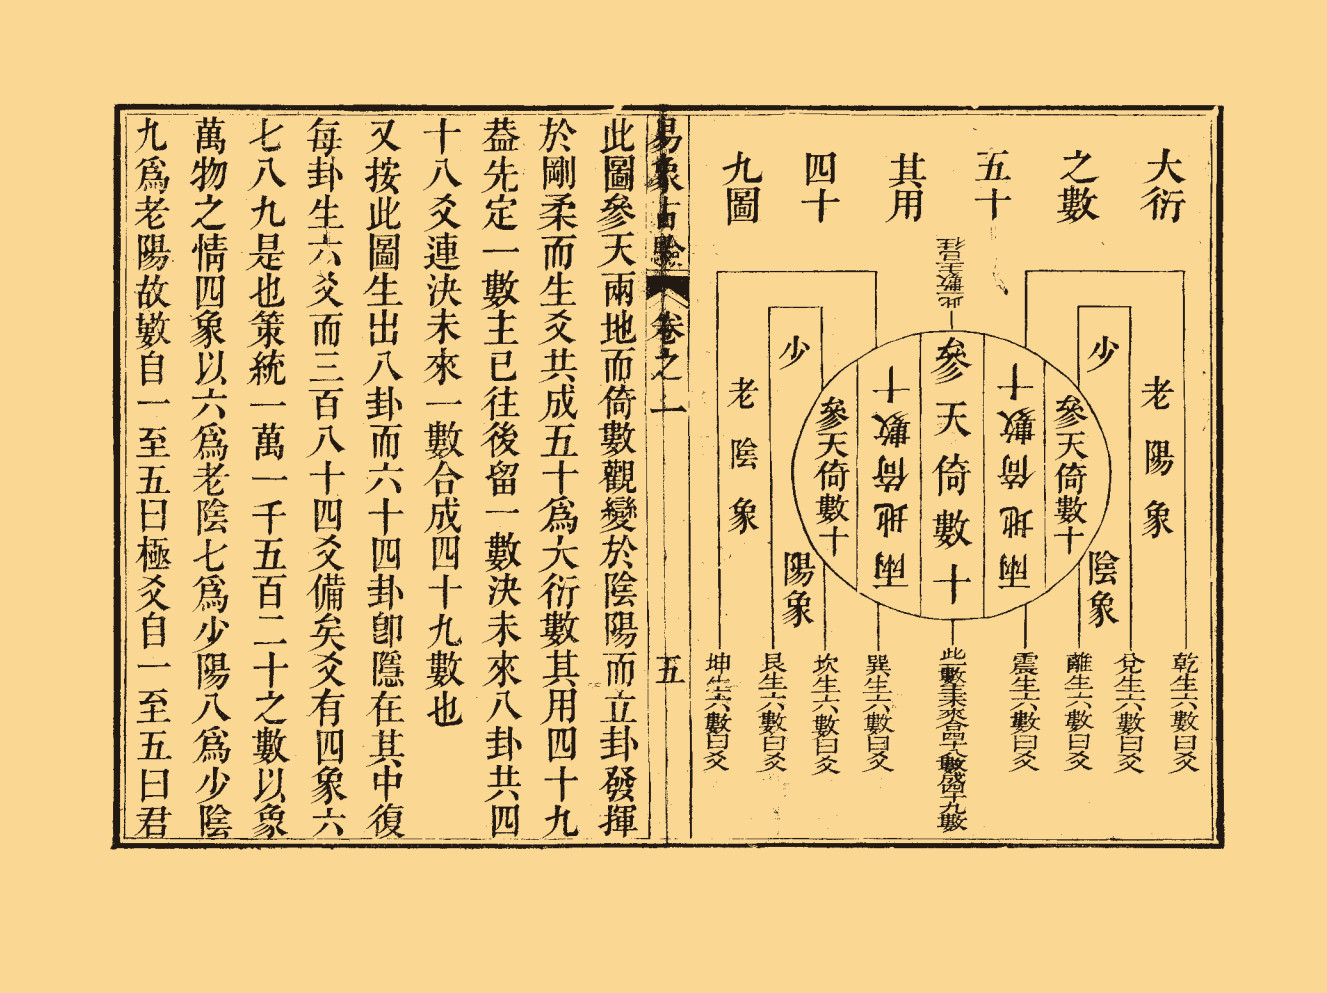 大衍
之數
五十
其用
四十
九圖
老陽象
少陰象
參天倚數十
兩地倚數十
此一數主已往
參天倚數十
兩地倚數十
參天倚數十
少陽象
老陰象
乾生六數曰爻
兌生六數曰爻
離生六數曰爻
震生六數曰爻
此一數主未來合四十八數成四十九數
巽生六數曰爻
坎生六數曰爻
艮生六數曰爻
坤生六數曰爻
易象 驗 卷之一 五
此圖參天兩地而倚數觀變於陰陽而立卦發揮
於剛柔而生爻共成五十爲大衍數其用四十九
葢先定一數主已往後留一數決未來八卦共四
十八爻連決未來一數合成四十九數也
又按此圖生出八卦而六十四卦卽隱在其中復
每卦生六爻而三百八十四爻備矣爻有四象六
七八九是也策統一萬一千五百二十之數以象
萬物之情四象以六爲老陰七爲少陽八爲少陰
九爲老陽故數自一至五曰極爻自一至五曰君